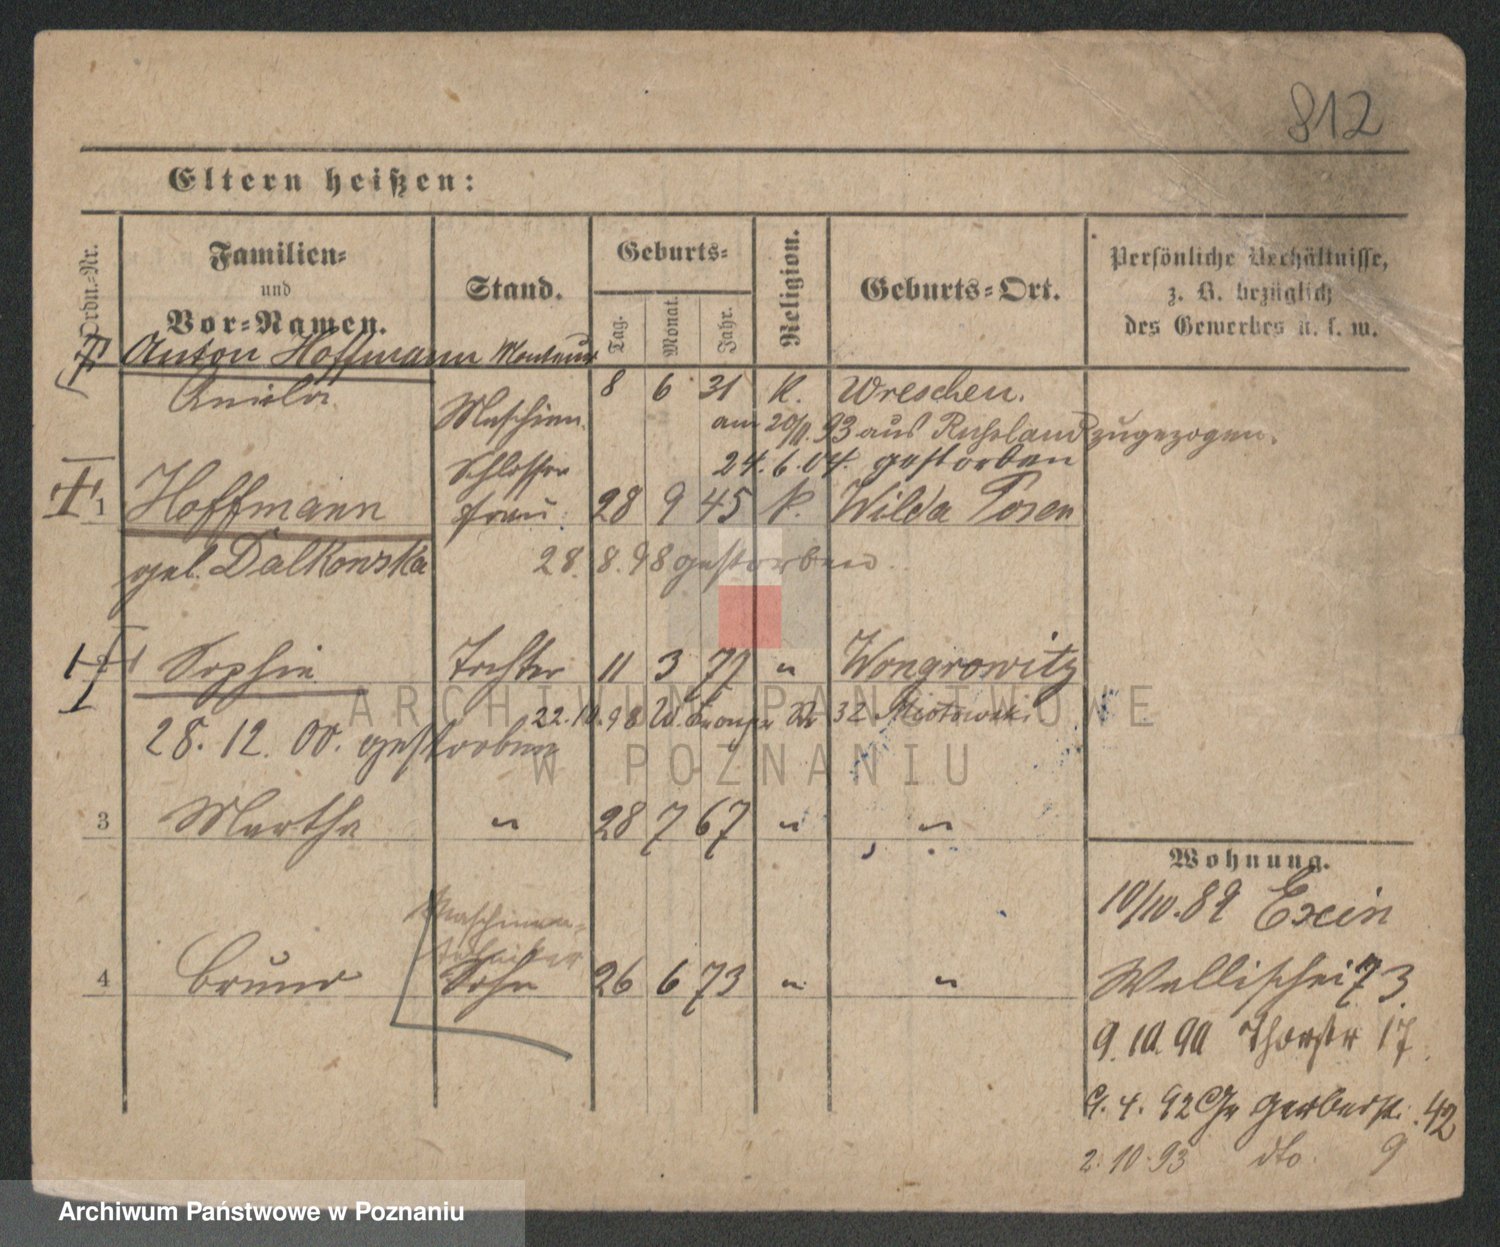 812
Eltern heißen:
Ordn.-Nr.
Familien-
und
Vor-Namen.
Stand.
Geburts-
Tag.
Monat.
Jahr.
Religion.
Geburts-Ort.
Persönliche Verhältnisse,
z. B. bezüglich
des Gewerbes u. s. w.
Anton Hoffmann Monteur 8 6 31 K. Wreschen.
am 20/9. 93 aus Rußland zugezogen.
24. 6. 04. gestorben
Aniela
Maschinen
Schlosser
1 Hoffmann frau 28 9 45 k. Wilda Posen
geb. Dalkowska 28. 8. 98 gestorben.
Sophie Tochter 11 3 77 " Wongrowitz
22.10.98 32
28. 12. 00. gestorben
3 Martha " 28 7 67 " "
Maschinen-
techniker
4 Bruno Sohn 26 6 73 " "
Wohnung.
10/10. 89 Exin
Wallischei 73
9. 10. 90 Thorstr 17
9. 4. 92 Gr Gerberstr. 42
2. 10. 93 dto. 9
ARCHIWUM PAŃSTWOWE
W POZNANIU
Archiwum Państwowe w Poznaniu